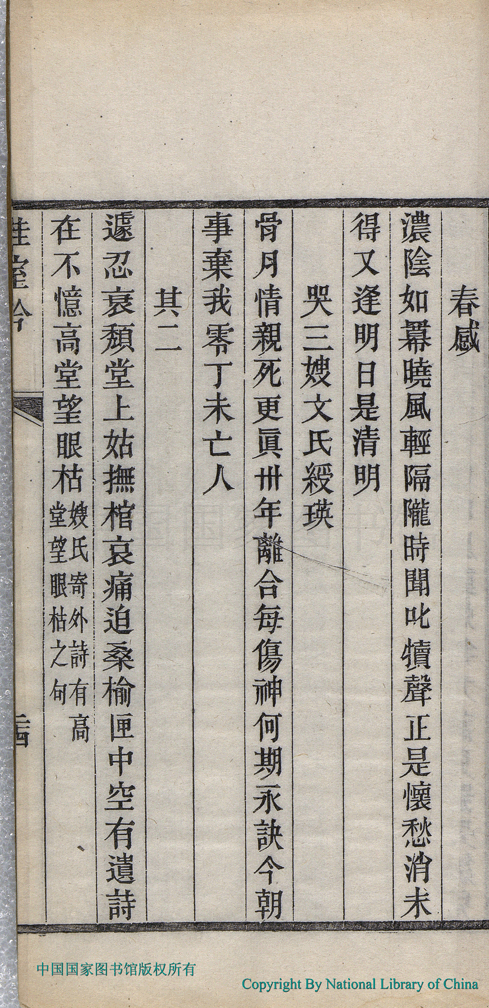 春感
濃陰如羃曉風輕隔隴時聞叱犢聲正是懷愁消未
得又逢明日是清明
哭三嫂文氏綬瑛
骨月情親死更眞卅年離合每傷神何期永訣今朝
事棄我零丁未亡人
其二
遽忍衰頹堂上姑撫棺哀痛迫桑榆匣中空有遺詩
在不憶高堂望眼枯
嫂氏寄外詩有高
堂望眼枯之句
中国国家图书馆版权所有
Copyright By National Library of China